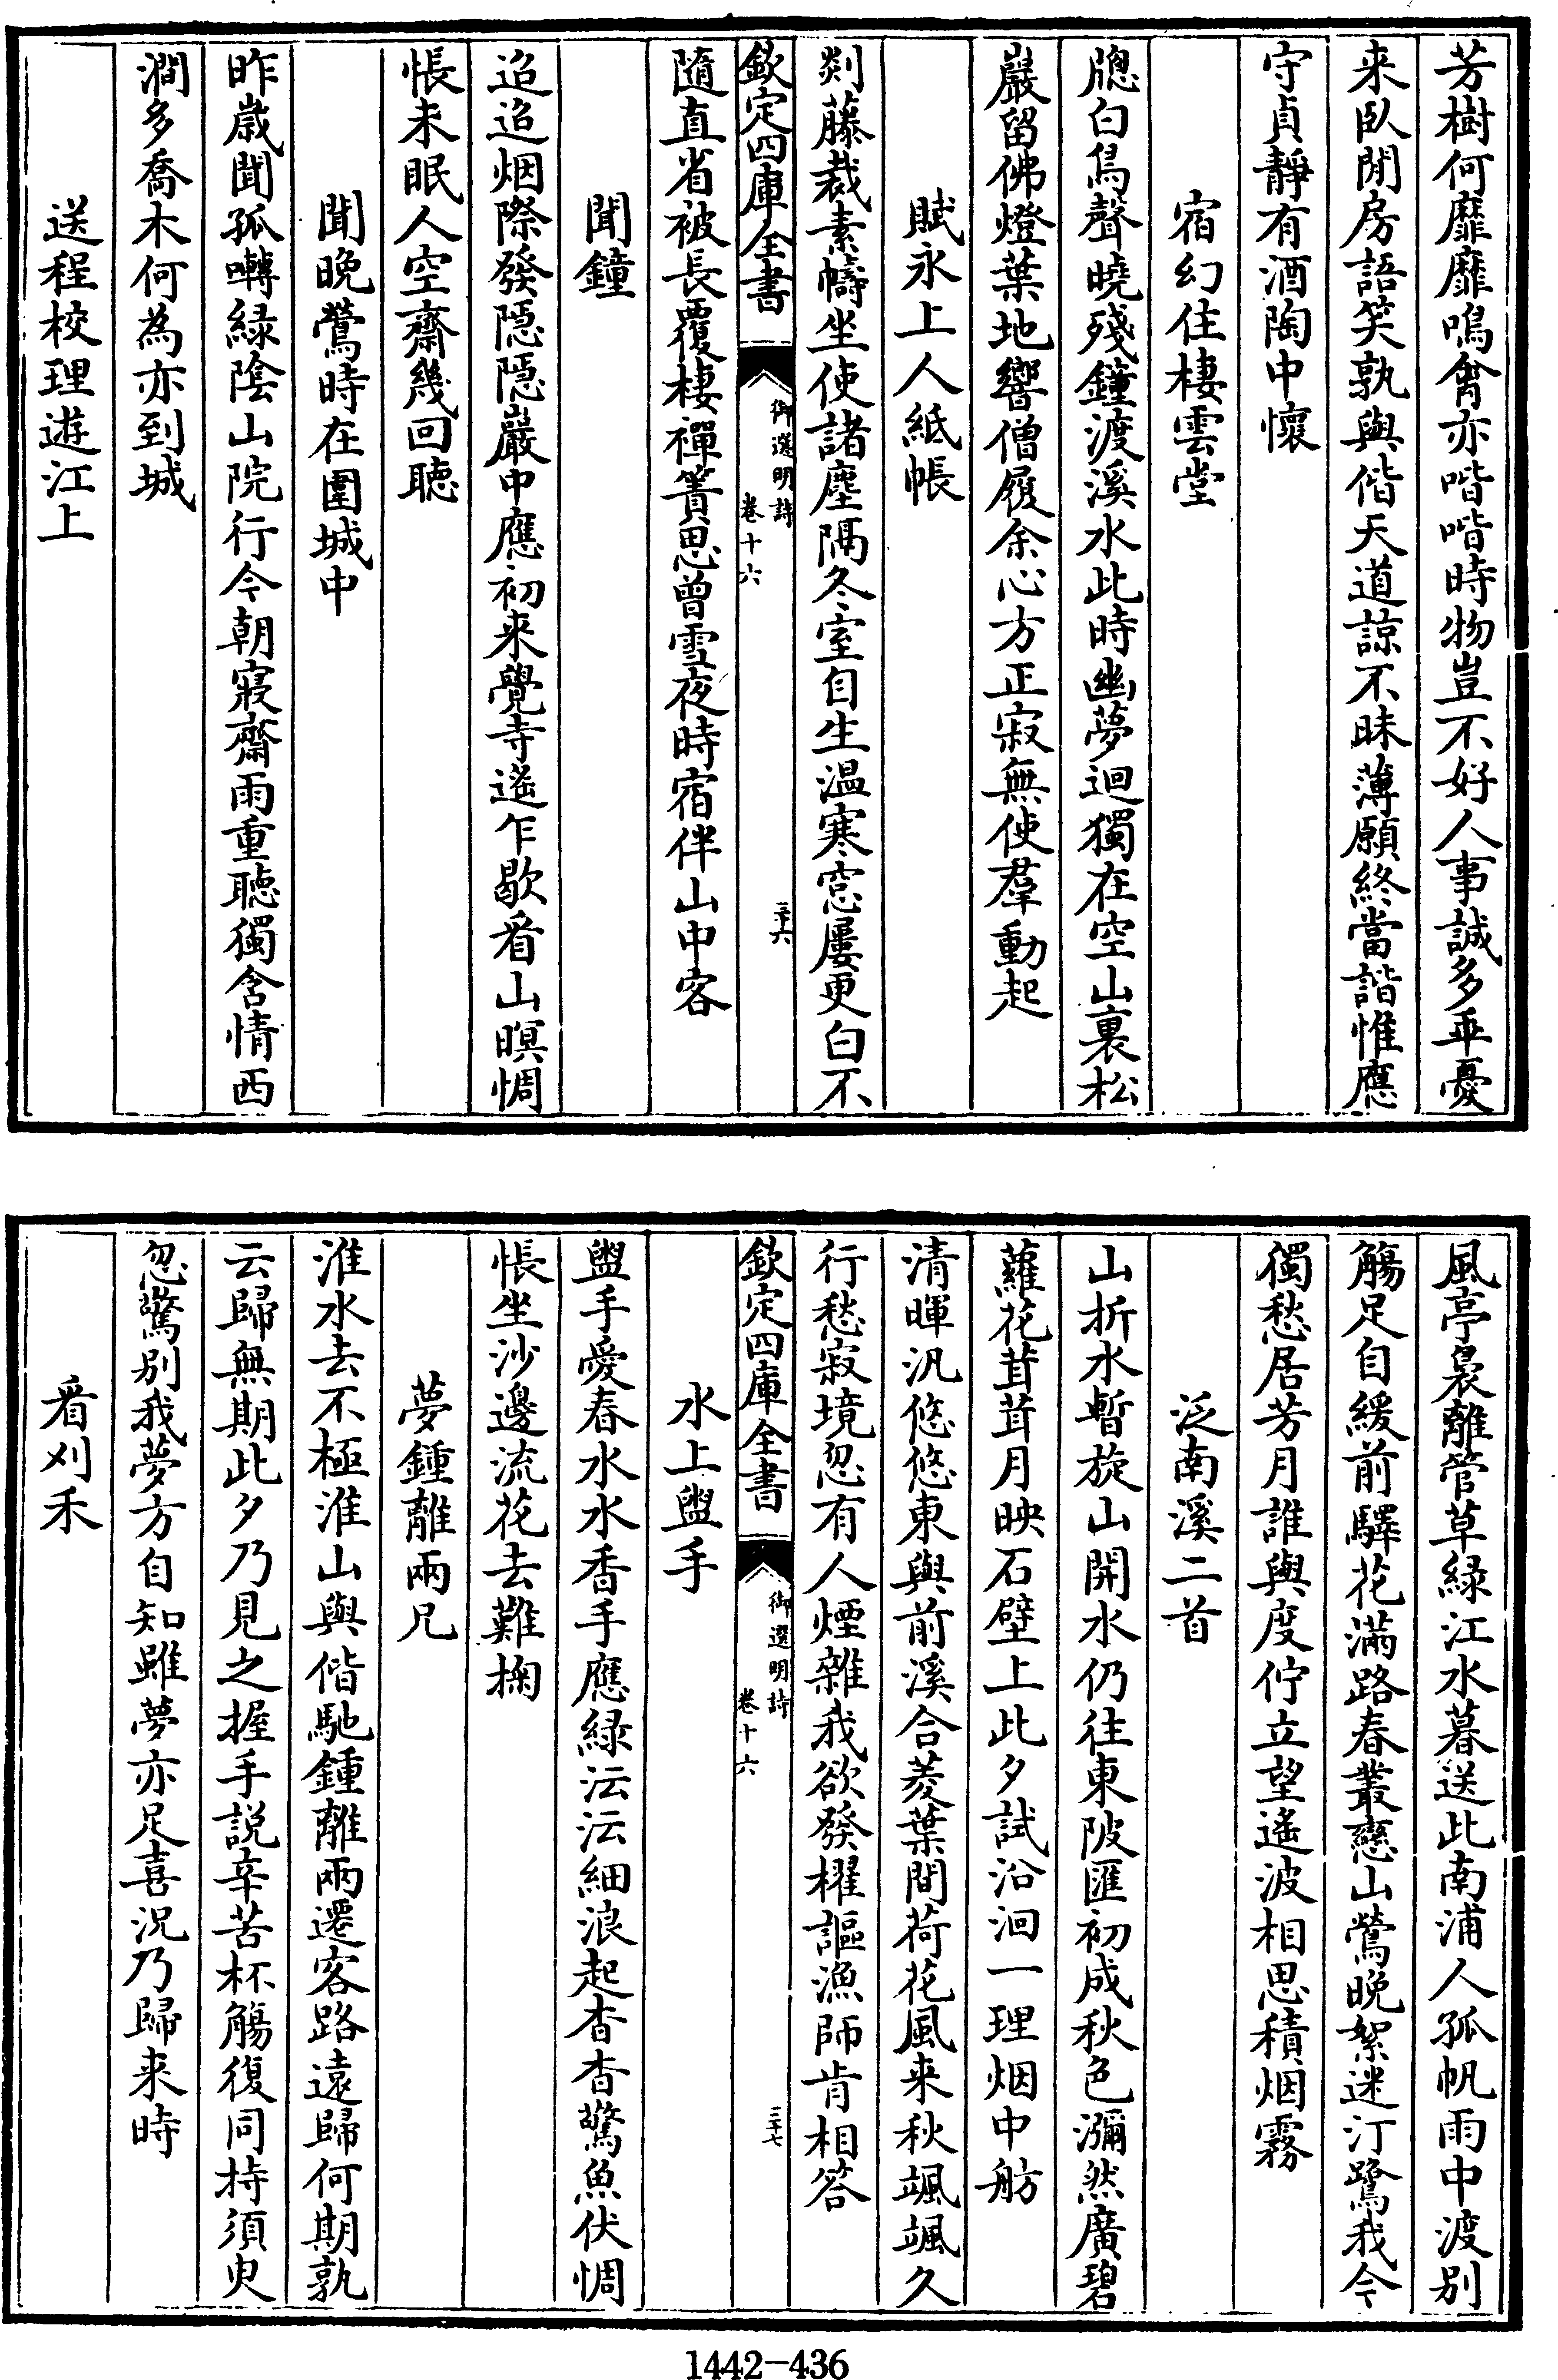 芳樹何靡靡鳴禽亦喈喈時物豈不好人事誠多乖憂
来臥閒房語笑孰與偕天道諒不昧薄願終當諧惟應
守貞靜有酒陶中懷
宿幻住棲雲堂
牕白鳥聲曉殘鐘渡溪水此時幽夢迴獨在空山裏松
巖留佛燈葉地響僧履余心方正寂無使羣動起
賦永上人紙帳
剡藤裁素幬坐使諸塵隔冬室自生温寒窓屢更白不
欽定四庫全書
御選明詩
卷十六
三十六
隨直省被長覆棲禪簀思曾雪夜時宿伴山中客
聞鐘
迢迢烟際發隠隠巖中應初来覺寺遙乍歇看山暝惆
悵未眠人空齋幾回聴
聞晚鶯時在圍城中
昨歳聞孤囀緑陰山院行今朝寂齋雨重聴獨含情西
澗多喬木何為亦到城
送程校理遊江上
風亭裊離管草緑江水暮送此南浦人孤帆雨中渡别
觴足自緩前驛花滿路春叢戀山鶯晚絮迷汀鷺我今
獨愁居芳月誰與度佇立望遙波相思積烟霧
泛南溪二首
山折水暫旋山開水仍往東陂匯初成秋色瀰然廣碧
蘿花茸茸月映石壁上此夕試沿洄一理烟中舫
清暉汎悠悠東與前溪合菱葉間荷花風来秋颯颯久
行愁寂境忽有人煙雜我欲發櫂謳漁師肯相答
欽定四庫全書
御選明詩
卷十六
三十七
水上盥手
盥手愛春水水香手應緑沄沄細浪起杳杳驚魚伏惆
悵坐沙邊流花去難掬
夢鍾離兩兄
淮水去不極淮山與偕馳鍾離兩遷客路遠歸何期孰
云歸無期此夕乃見之握手説辛苦杯觴復同持須臾
忽驚别我夢方自知雖夢亦足喜況乃歸来時
看刈禾
1442-436